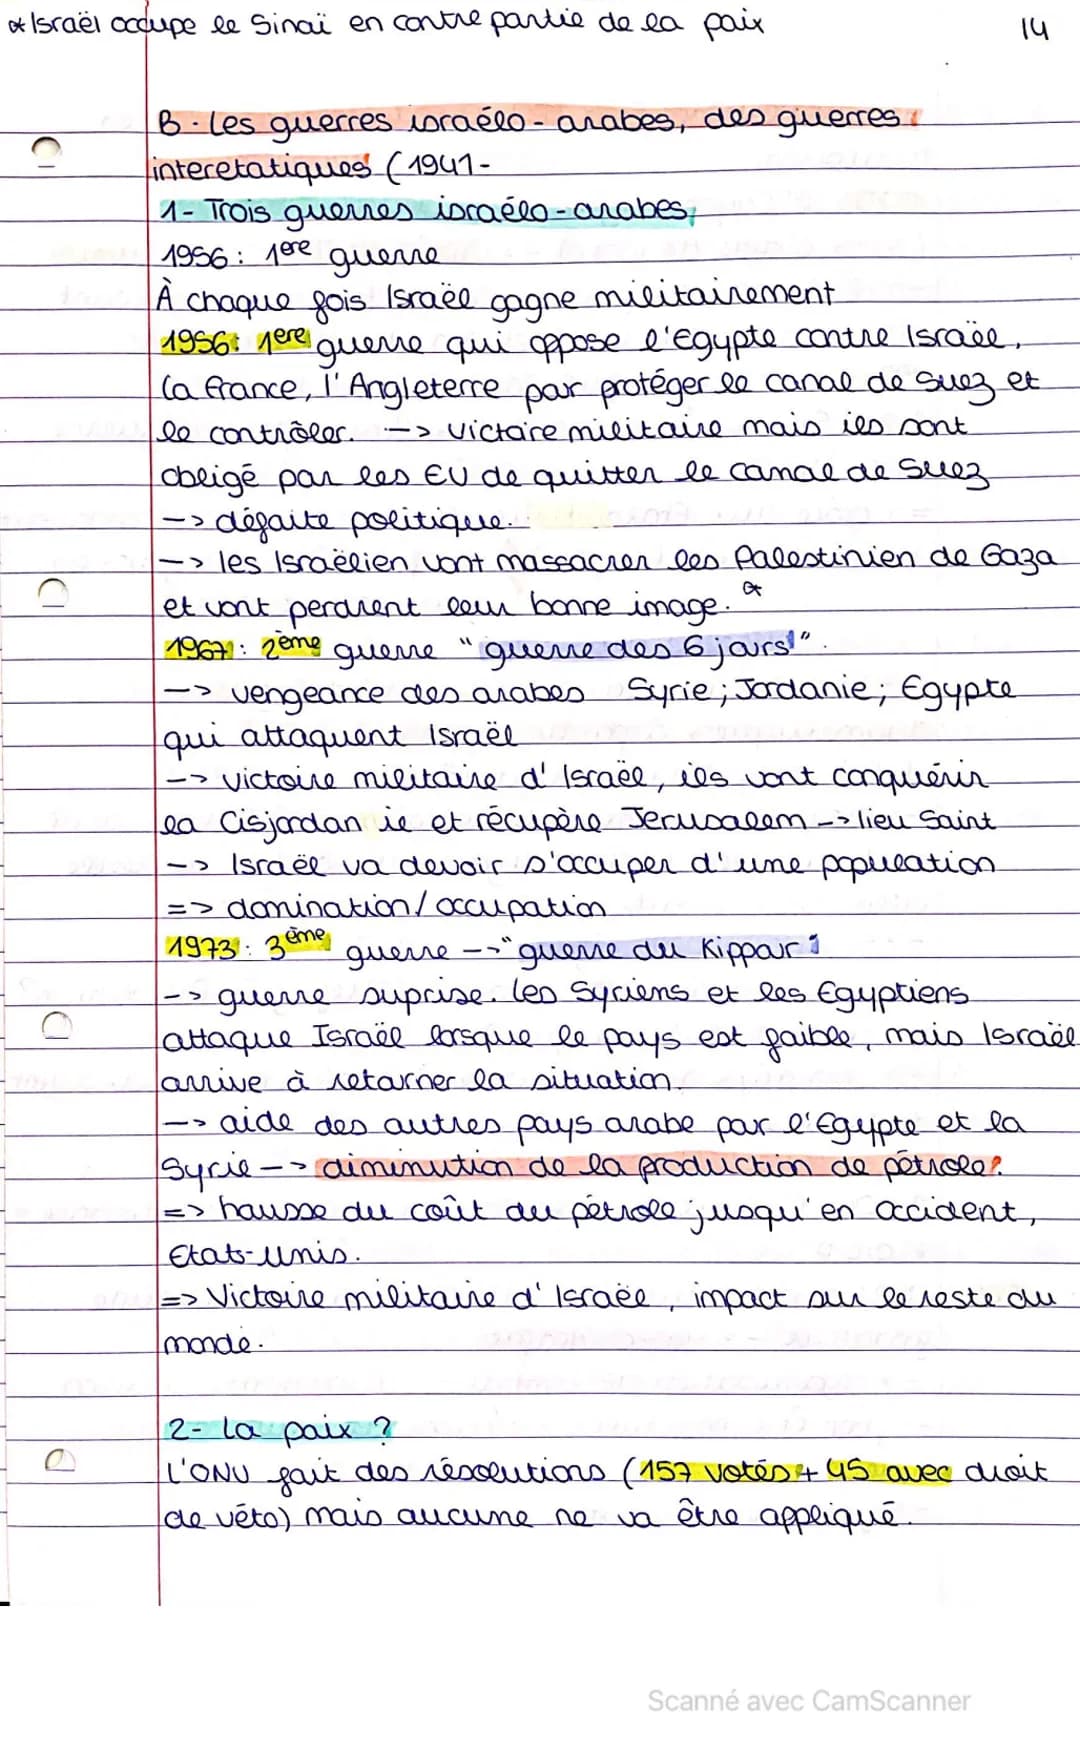 * Israël occupe le Sinaï en contre partie de la paix
14
B - Les guerres israélo - arabes, des guerres
interetatiques (1941-
1- Trois guerres israélo-arabes,
1956 : 1ere guerre
À chaque fois Israël gagne militairement
1956: 1ere guerre qui oppose l'Egypte contre Israël,
la france, l'Angleterre par protéger le canal de Suez et
le contrôler. --> victoire militaire mais ils sont
obligé par les EU de quitter le canal de Suez
--> défaite politique.
--> les Israëlien vont massacrer les Palestinien de Gaza
et vont perdrent leur bonne image. *
1967 : 2ème guerre "guerre des 6 jours".
--> vengeance des arabes Syrie ; Jordanie ; Egypte
qui attaquent Israël
--> victoire militaire d'Israël, ils vont conquérir
la Cisjordan ie et récupère Jerusalem --> lieu Saint
--> Israël va devoir s'occuper d'une population
=> domination/occupation
1973 : 3ème guerre --> "guerre du Kippour"
--> guerre suprise. Les Syriens et les Egyptiens
attaque Israël lorsque le pays est faible, mais Israël
arrive à retourner la situation.
--> aide des autres pays arabe par l'Egypte et la
Syrie --> diminution de la production de pétrole.
=> hausse du coût du pétrole jusqu'en occident,
Etats-Unis.
=> Victoire militaire d'Israël, impact sur le reste du
monde.
2- La paix ?
L'ONU fait des résolutions (157 votés + 45 avec droit
de véto) mais aucune ne va être appliqué.
Scanné avec CamScanner